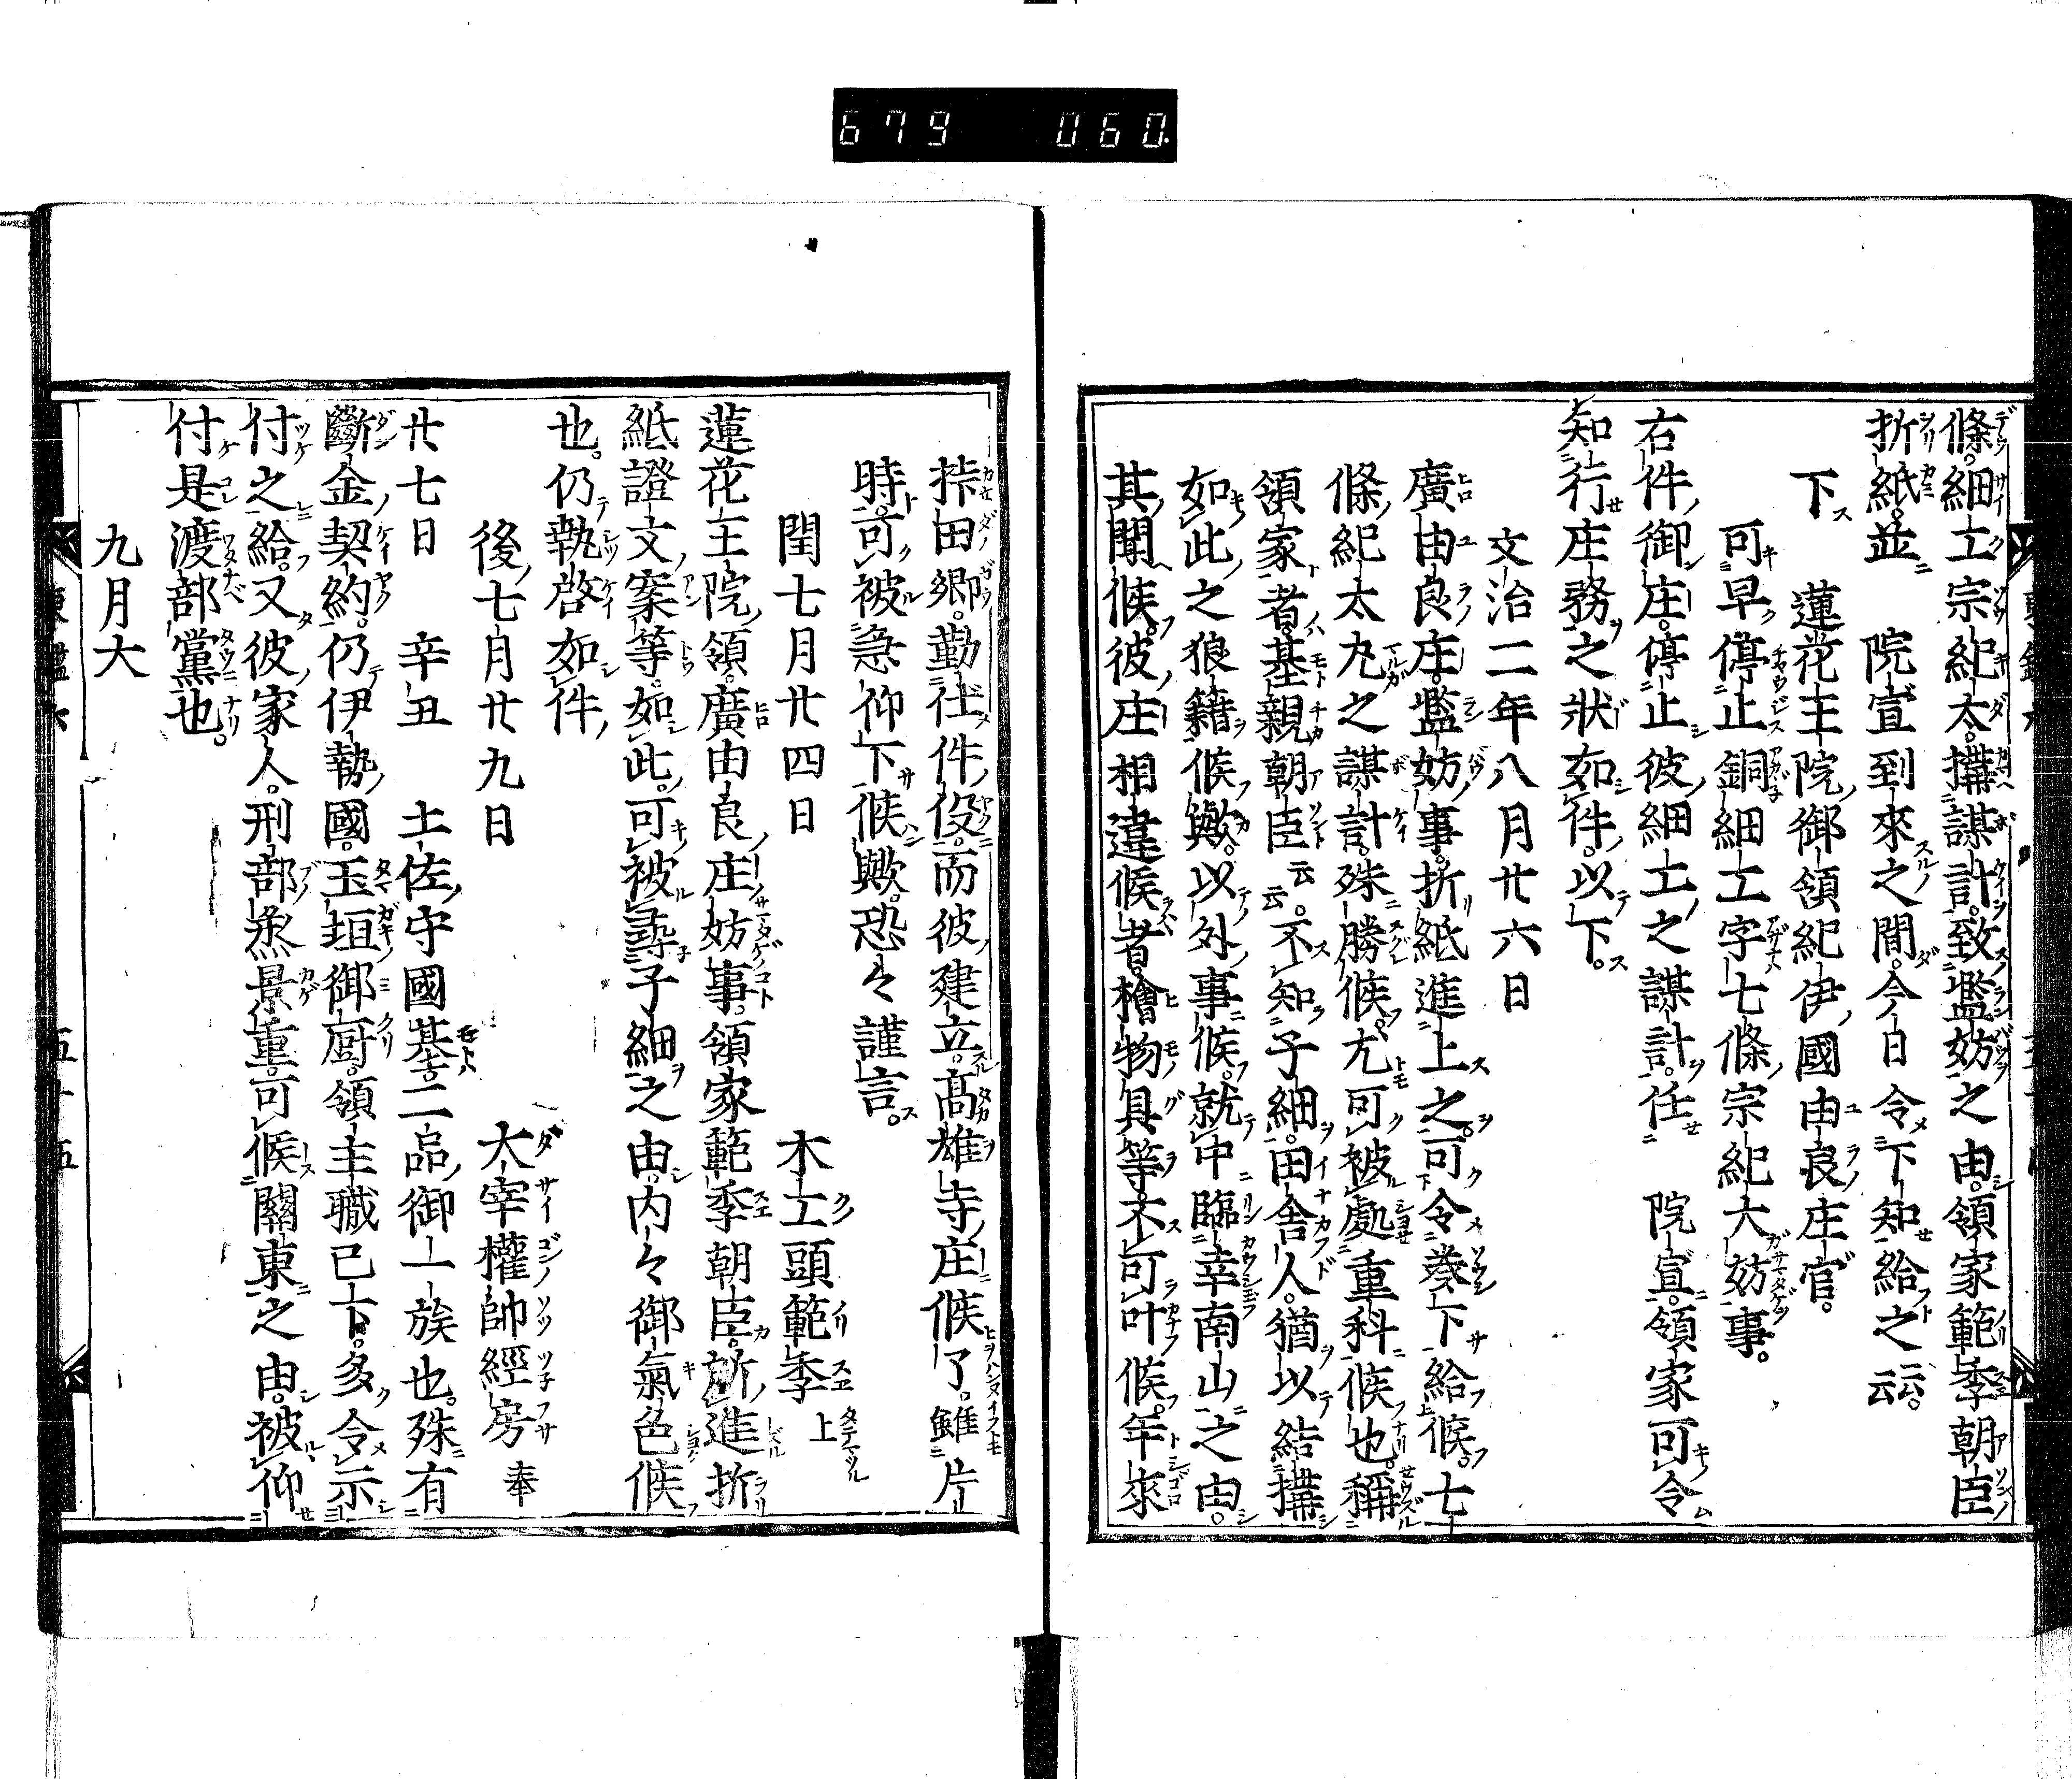 679 060.
條。細工宗紀太。搆謀計。致濫妨之由。領家範季朝臣
折紙。並 院宣到來之間。今日令下知給之云云。
下 蓮花王院御領紀伊國由良庄官。
可早停止銅細工字七條宗紀大妨事。
右件御庄。停止彼細工之謀計。任 院宣。領家可令
知行庄務之狀如件。以下。
文治二年八月廿六日
廣由良庄。濫妨事。折紙進上之。可令卷下給候。七
條紀太丸之謀計。殊勝候。尤可被處重科候也。稱
領家者。基親朝臣云云。不知子細。田舍人。猶以結搆
如此之狼籍候歟。以外事候。就中臨幸南山之由。
其聞候。彼庄相違候者。檜物具等。不可叶候。年來
桛田郷。勤仕件役。而彼建立。高雄寺庄候了。雖片
時。可被急仰下候歟。恐々謹言。
閏七月廿四日 木工頭範季上
蓮花王院領。廣由良庄妨事。領家範季朝臣。所進折
紙證文案等。如此。可被尋子細之由。内々御氣色候
也。仍執啓如件
後七月廿九日 大宰權帥經房奉
廿七日 辛丑 土佐守國基。二品御一族也。殊有
斷金契約。仍伊勢國。玉垣御厨。領主職已下。多令示
付之給。又彼家人。刑部烝景重。可候關東之由。被仰
付是渡部黨也。
九月大